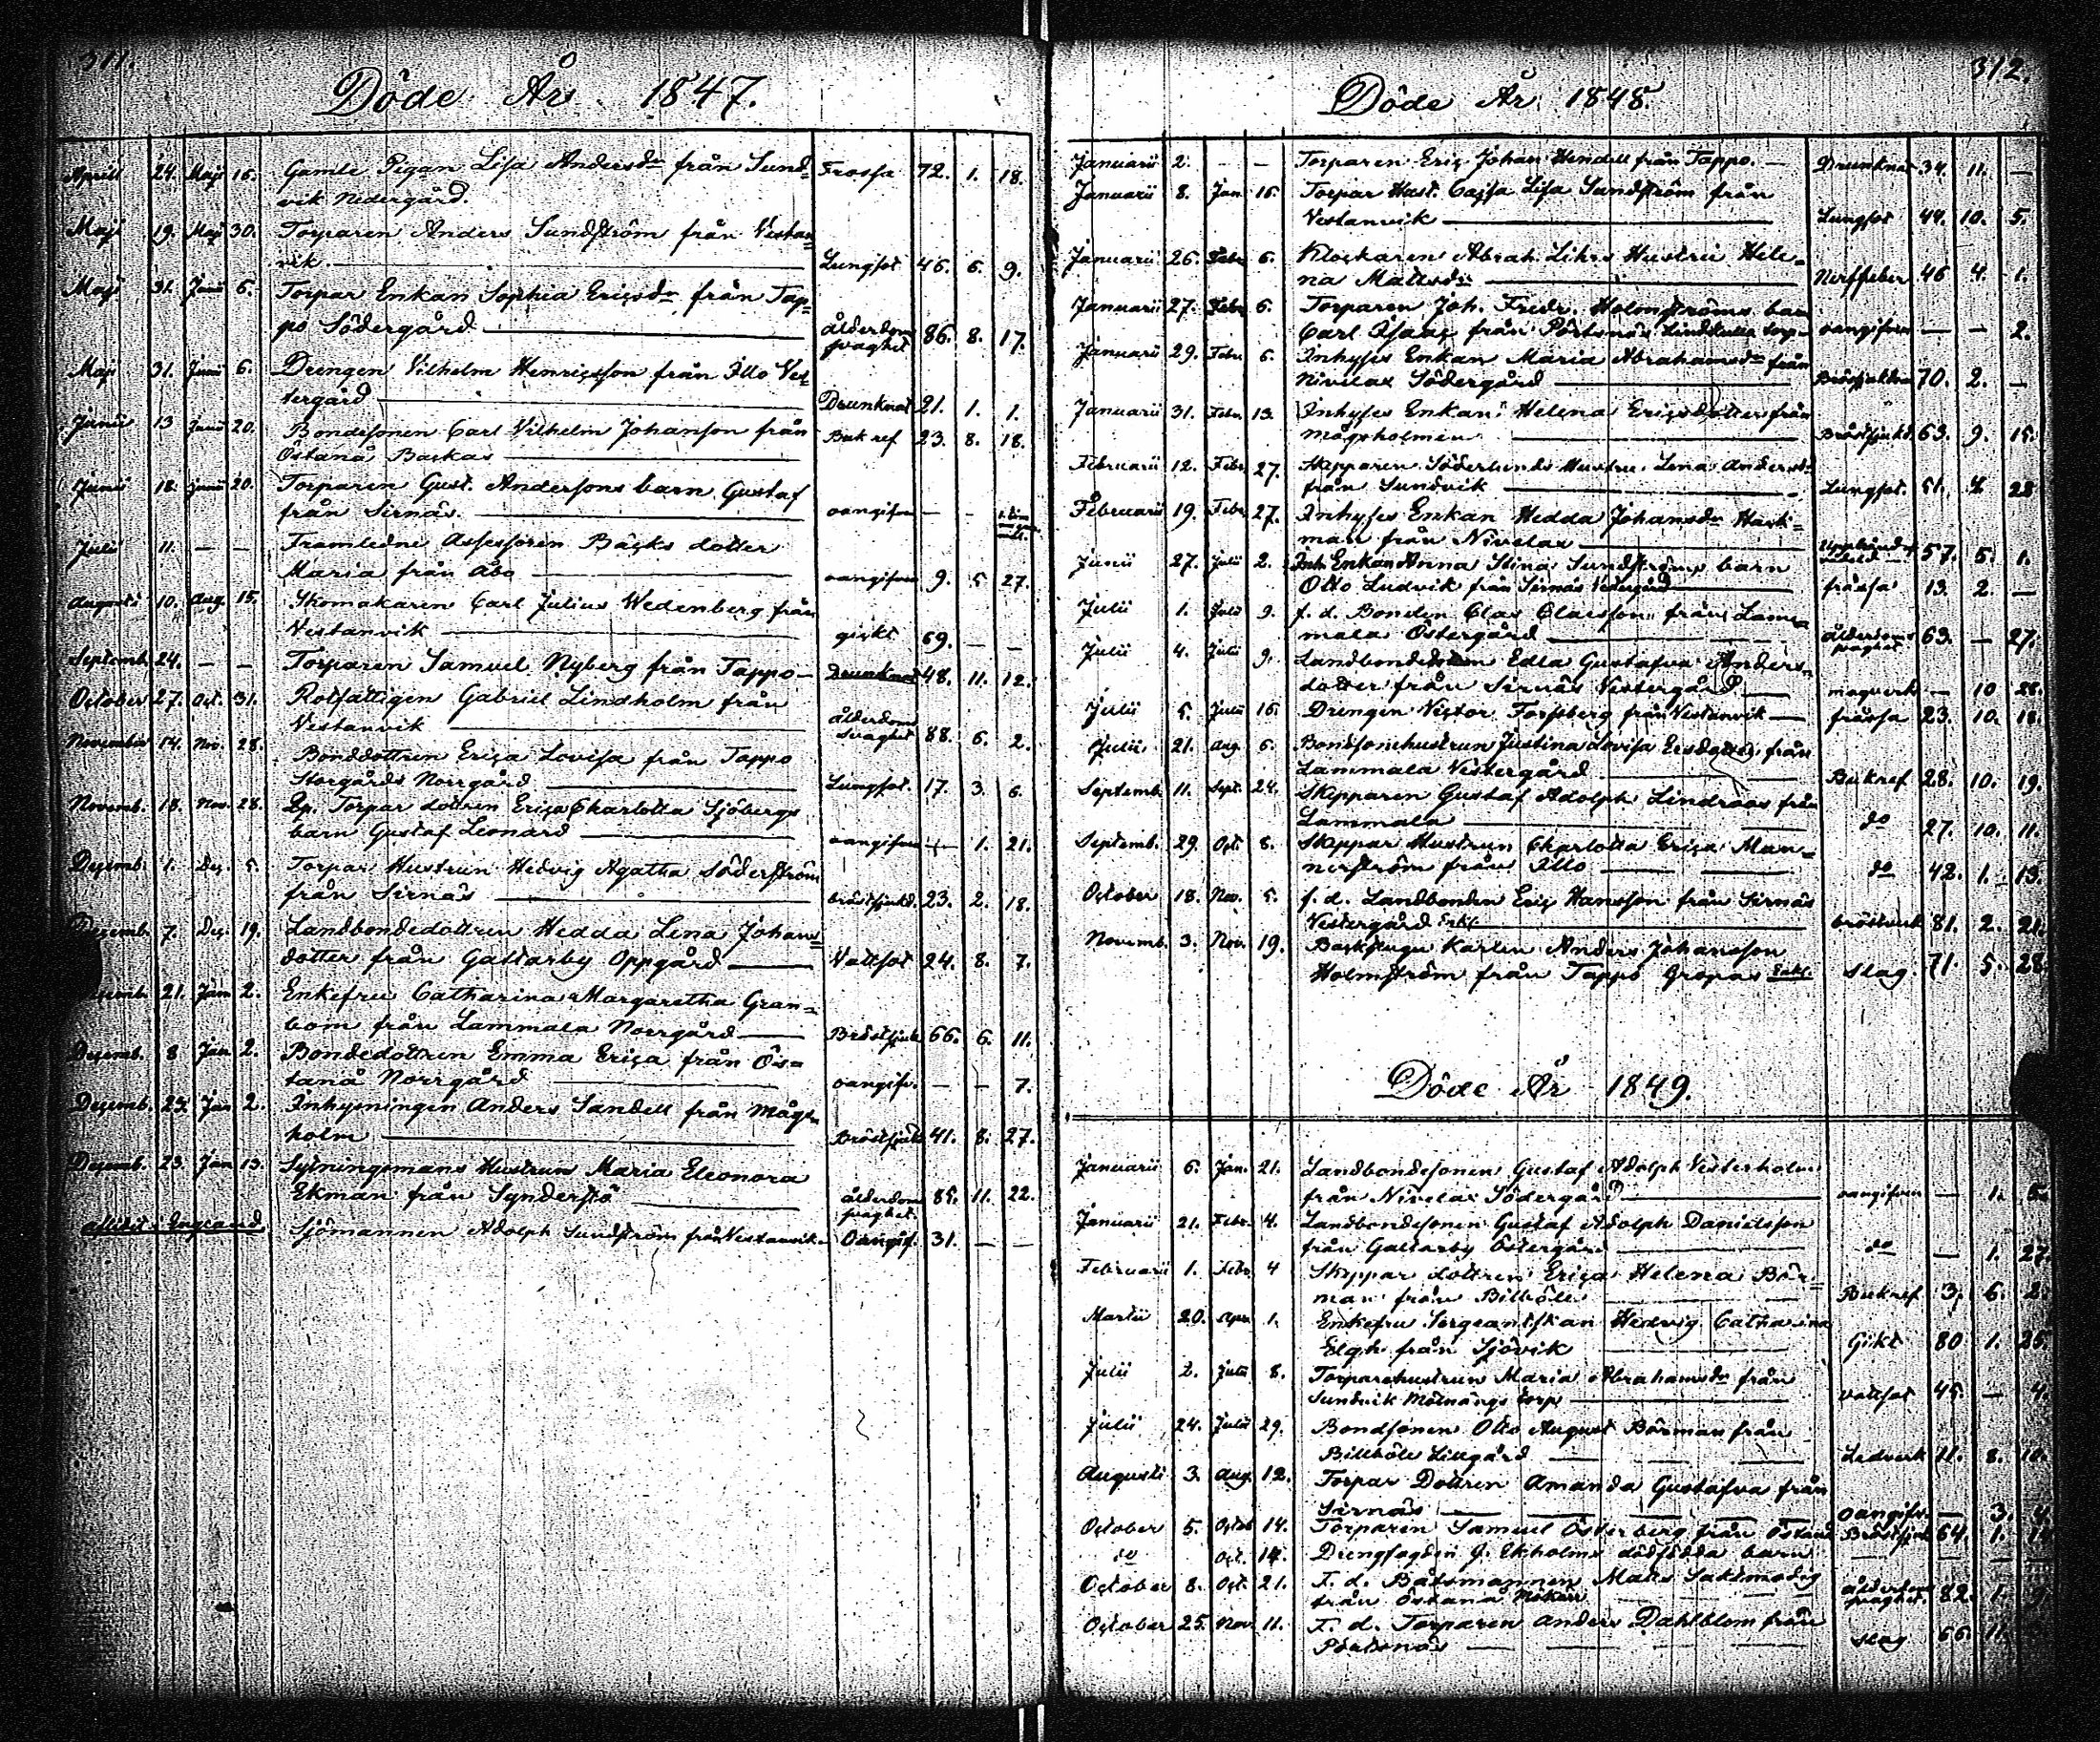 311.
Döde År 1847.
Aprill 24. Maji 16. Gamle Pigan Lisa Andersdr från Sund= Frossa 72. 1. 18.
vik Nedergård.
Maji 19. Maji 30. Torparen Anders Sundström från Vestan=
vik Lungsot 46. 6. 9.
Maji 31. Junii 6. Torpar Enkan Sophia Ericsdr från Tap=
po Södergård ålderdoms svaghet 86. 8. 17.
Maji 31. Junii 6. Drengen Vilhelm Henricsson från Illo Ves=
tergård Drunknat 21. 1. 1.
Junii 13 Junii 20. Bondesonen Carl Vilhelm Johanson från Bukref 23. 8. 18.
Östanå Backas
Junii 18. Junii 20. Torparen Gust. Andersons barn Gustaf
från Sirnäs. oangifven — —
Julii 11. — — Framledne Assessoren Bäcks dotter
Maria från Åbo oangifven 9. 5 27.
Augusti 10. Aug. 15. Skomakaren Carl Julius Wedenberg från
Vestanvik gickt 69. — —
Septemb. 24. — — Torparen Samuel Nyberg från Tappo — Drunknat 48. 11. 12.
October 27. Oct. 31. Rotfattigen Gabriel Lindholm från
Vestanvik ålderdoms svaghet 88. 6. 2.
November 14. Nov. 28. Bonddottren Erica Lovisa från Tappo
Storgårds Norrgård Lungsot. 17. 3. 6.
Novemb. 18. Nov. 28. Torpar dottren Erica Charlotta Sjöbergs
barn Gustaf Leonard oangifven — 1. 21.
Decemb. 1. Dec. 5. Torpar Hustrun Hedvig Agatha Söderström
från Sirnäs bröstsjukd. 23. 2. 18.
Decemb. 7. Dec. 19. Landbondedottren Hedda Lena Johans=
dotter från Galtarby Oppgård Vattsot 24. 8. 7.
21. Jan. 2. Enkefru Catharina Margaretha Gran=
bom från Lammala Norrgård Bröstsjuk 66. 6. 11.
Decemb. 8 Jan 2. Bondedottren Emma Erica från Ös=
tanå Norrgård oangifv. — — 7.
Decemb. 23. Jan 2. Inhysningen Anders Sandell från Mågs=
holm Bröstsjukd 41. 8. 27.
Decemb. 23. Jan 13. Sytningsmans Hustrun Maria Eleonora
Ekman från Synderstö ålderdoms svaghet. 85. 11. 22.
aflidit i England. Sjömannen Adolph Sundström från Vestanvik. Oangif. 31. — —
312.
Döde År 1848.
Januarii 2. — — Torparen Eric Johan Hendell från Tappo. — Drunknat 34. 11. —
Januarii 8. Jan. 16. Torpar Hust. Cajsa Lisa Sundström från
Vestanvik Lungsot 44. 10. 5.
Januarii 26. Febr. 6. Klockaren Abrah. Lihrs Hustru Hele=
na Mattsdr Nerffeber 46 4. 1.
Januarii 27. Febr. 6. Torparen Joh. Fredr. Holmströms barn
Carl Isaac från Pörtsnäs torp oangifven — — 2.
Januarii 29. Febr. 6. Inhyses Enkan Maria Abrahamsdr från
Nivelax Södergård 70. 2. —
Januarii 31. Febr. 13. Inhyses Enkan Helena Ericsdotter från
Mågsholmen Bröstsjukd. 63. 9. 15.
Februarii 12. Febr. 27. Skepparen Söderlunds Hustru Lena Andersdr
från Sundvik Lungsot. 51. 28
Februarii 19. Febr. 27. Inhyses Enkan Hedda Johansdr Hast=
man från Nivelax 57. 5. 1.
Junii 27. Julii 2. Inh. Enkan Anna Stina Sundströms barn
Otto Ludvik från Sirnäs Vestergård frossa 13. 2. —
Julii 1. Julii 9. f. d. Bonden Clas Claesson från Lam=
mala Östergård ålderdoms svaghet 63. — 27.
Julii 4. Julii 9. Edla Gustafva Anders=
dotter från Sirnäs Vestergård magverk — 10 28.
Julii 5. Julii 16. Drengen Victor Forssberg från Vestanvik — frossa 23. 10. 18.
Julii 21. Aug. 6. Bondsonhustrun Justina Lovisa Ersdotter från
Lammala Vestergård Bukref 28. 10. 19.
Septemb. 11. Sept. 24. Skepparen Gustaf Adolph Lindroos från
Lammala do 27. 10. 11.
Septemb. 29. Oct. 8. Skeppar Hustrun Charlotta Erica Man=
nerström från Illo do 42. 1. 13.
October 18. Nov. 5. f. d. Landbonden Eric Hansson från Sirnäs
Vestergård Enkl. bröstverk 81. 2. 21.
Novemb. 3. Nov. 19. Backstugu Karlen Anders Johansson
Holmström från Tappo Gropas Enkl. slag. 71. 5. 28.
Döde År 1849.
Januarii 6. Jan. 21. Landbondesonen Gustaf Adolph Vesterholm
från Nivelax Södergård oangifven — 1. 5.
Januarii 21. Febr. 4. Landbondesonen Gustaf Adolph Danielsson
från Galtarby Östergård do — 1. 27.
Februarii 1. Febr. 4 Skeppar dottren Erica Helena Bör=
man från Billböle Bukref 3. 6. 2.
Martii 20. Apr. 1. Enkefru Sergeantskan Hedvig Catharina
Elgh från Sjövik Gikt 80 1. 25.
Julii 2. Julii 8. Torparehustrun Maria Abrahamsdr från
Sundvik torp vattsot 45. — 4.
Julii 24. Julii 29. Bondsonen Otto August Börman från
Billböle Lillgård Ledverk 11. 8. 10.
Augusti 3. Aug. 12. Torpar Dottren Amanda Gustafva från
Sirnäs oangifv. — 3. 4.
October 5. Octob 14. Torparen Samuel Österberg från Östanå Bröstsjuk 64. 1.
do Oct. 14. Drengfogden J. Ekholms dödfödda barn — — —
October 8. Oct. 21. F. d. Båtsmannen Matts Saktmodig
från Östanå ålderdoms svaghet. 82. 1. 9.
October 25. Nov. 11. F. d. Torparen Anders Dahlblom från
Pörtsnäs slag 66. 11.